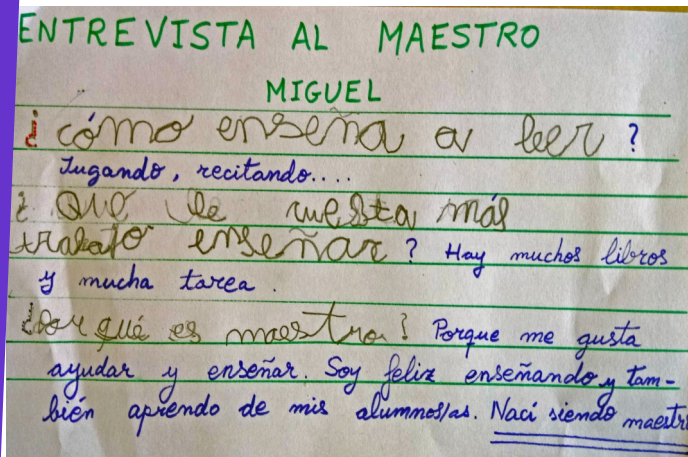 ENTREVISTA AL MAESTRO
MIGUEL
¿cómo enseña a leer?
Jugando, recitando....
¿Qué le cuesta más
trabajo enseñar? Hay muchos libros
y mucha tarea.
¿Por qué es maestro? Porque me gusta
ayudar y enseñar. Soy feliz enseñando y tam-
bién aprendo de mis alumnos/as. Nací siendo maestro